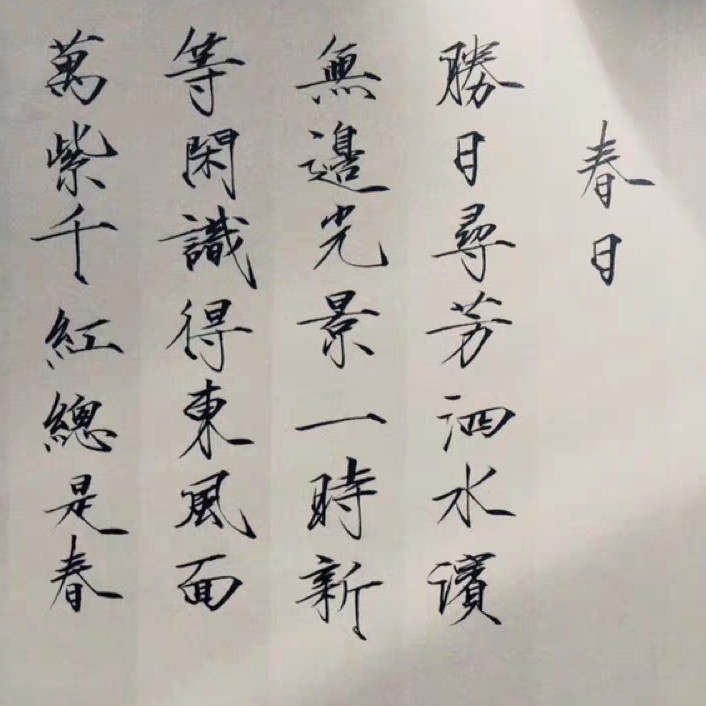 春日
勝日尋芳泗水濱
無邊光景一時新
等閑識得東風面
萬紫千紅總是春